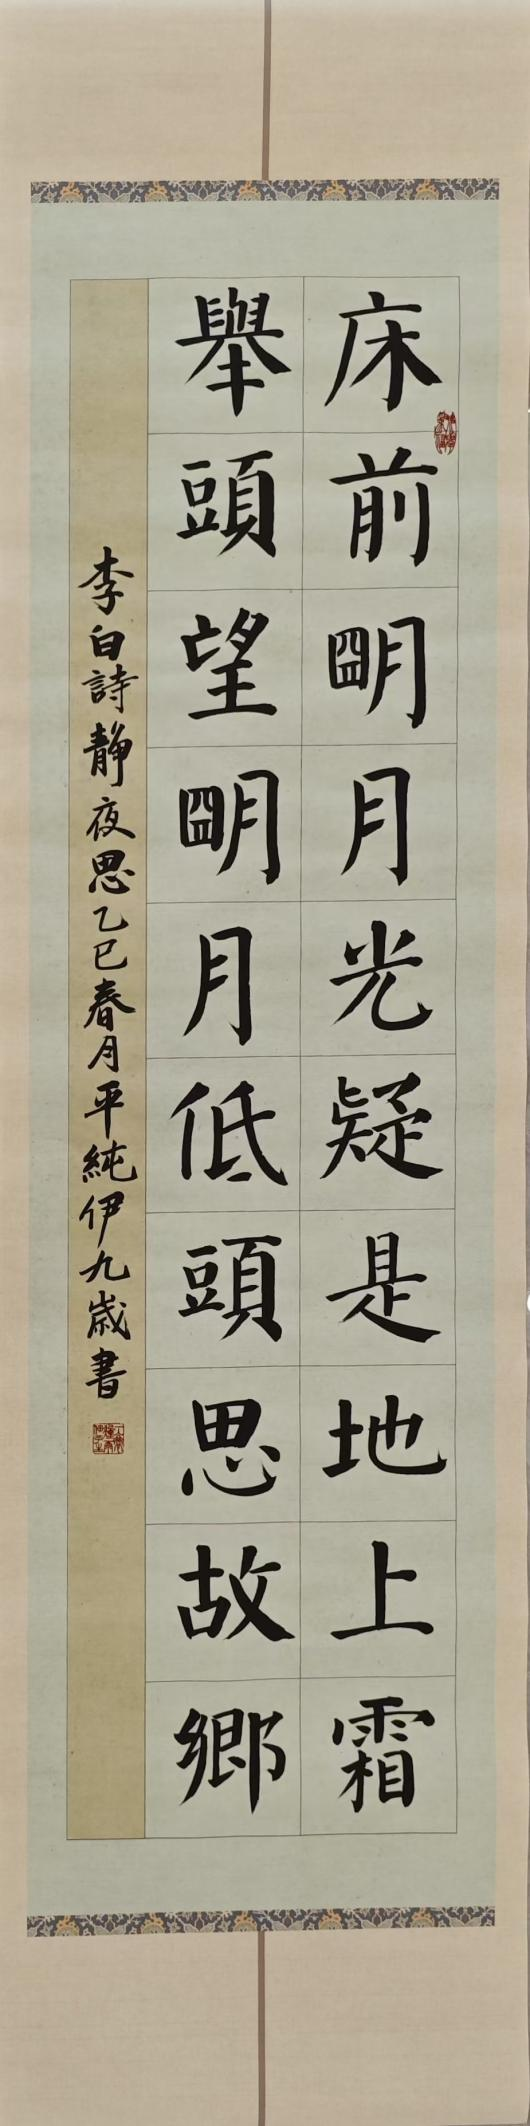 床前朙月光疑是地上霜
舉頭望朙月低頭思故鄉
李白詩静夜思乙巳春月平純伊九歳書